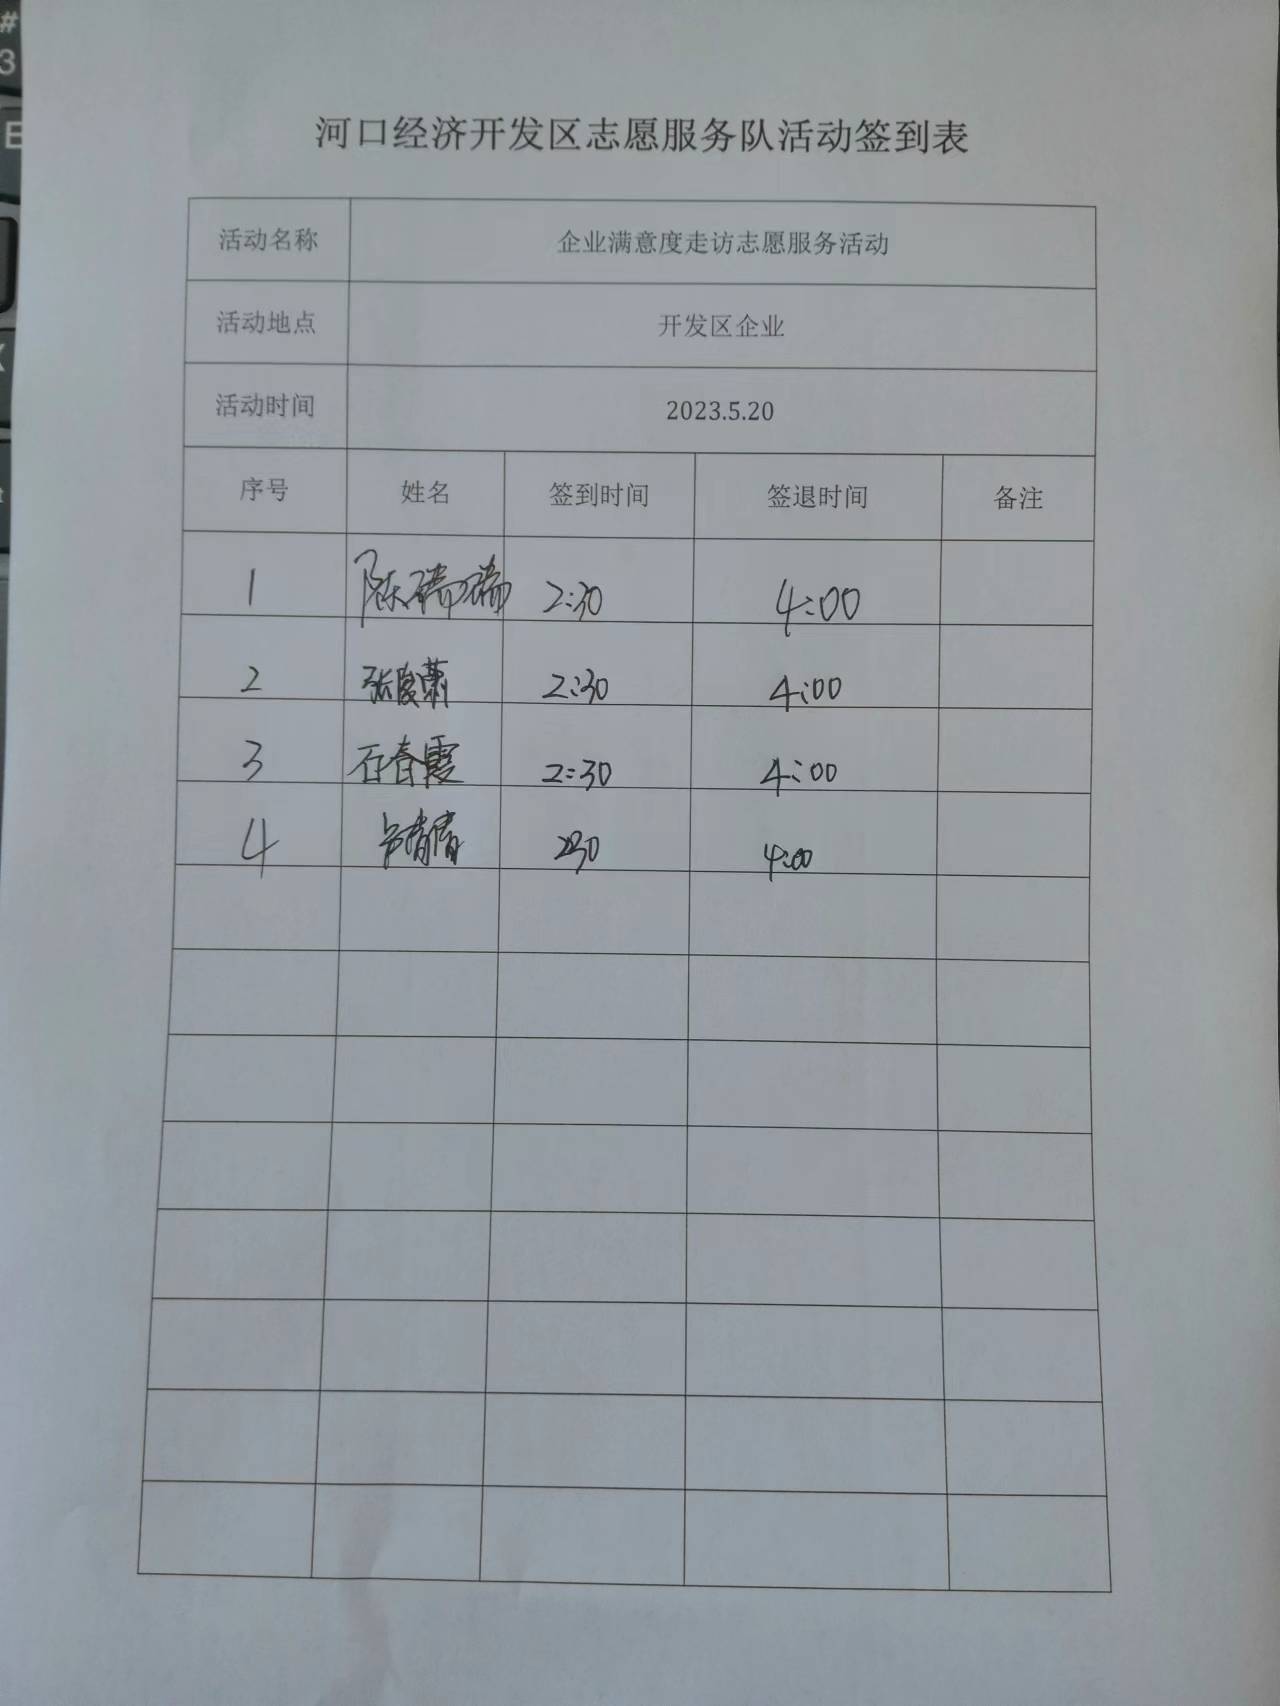 河口经济开发区志愿服务队活动签到表
活动名称 企业满意度走访志愿服务活动
活动地点 开发区企业
活动时间 2023.5.20
序号 姓名 签到时间 签退时间 备注
1 陈瑞瑞 2:30 4:00
2 张俊萧 2:30 4:00
3 石春霞 2:30 4:00
4 卢倩倩 2:30 4:00
#
3
E